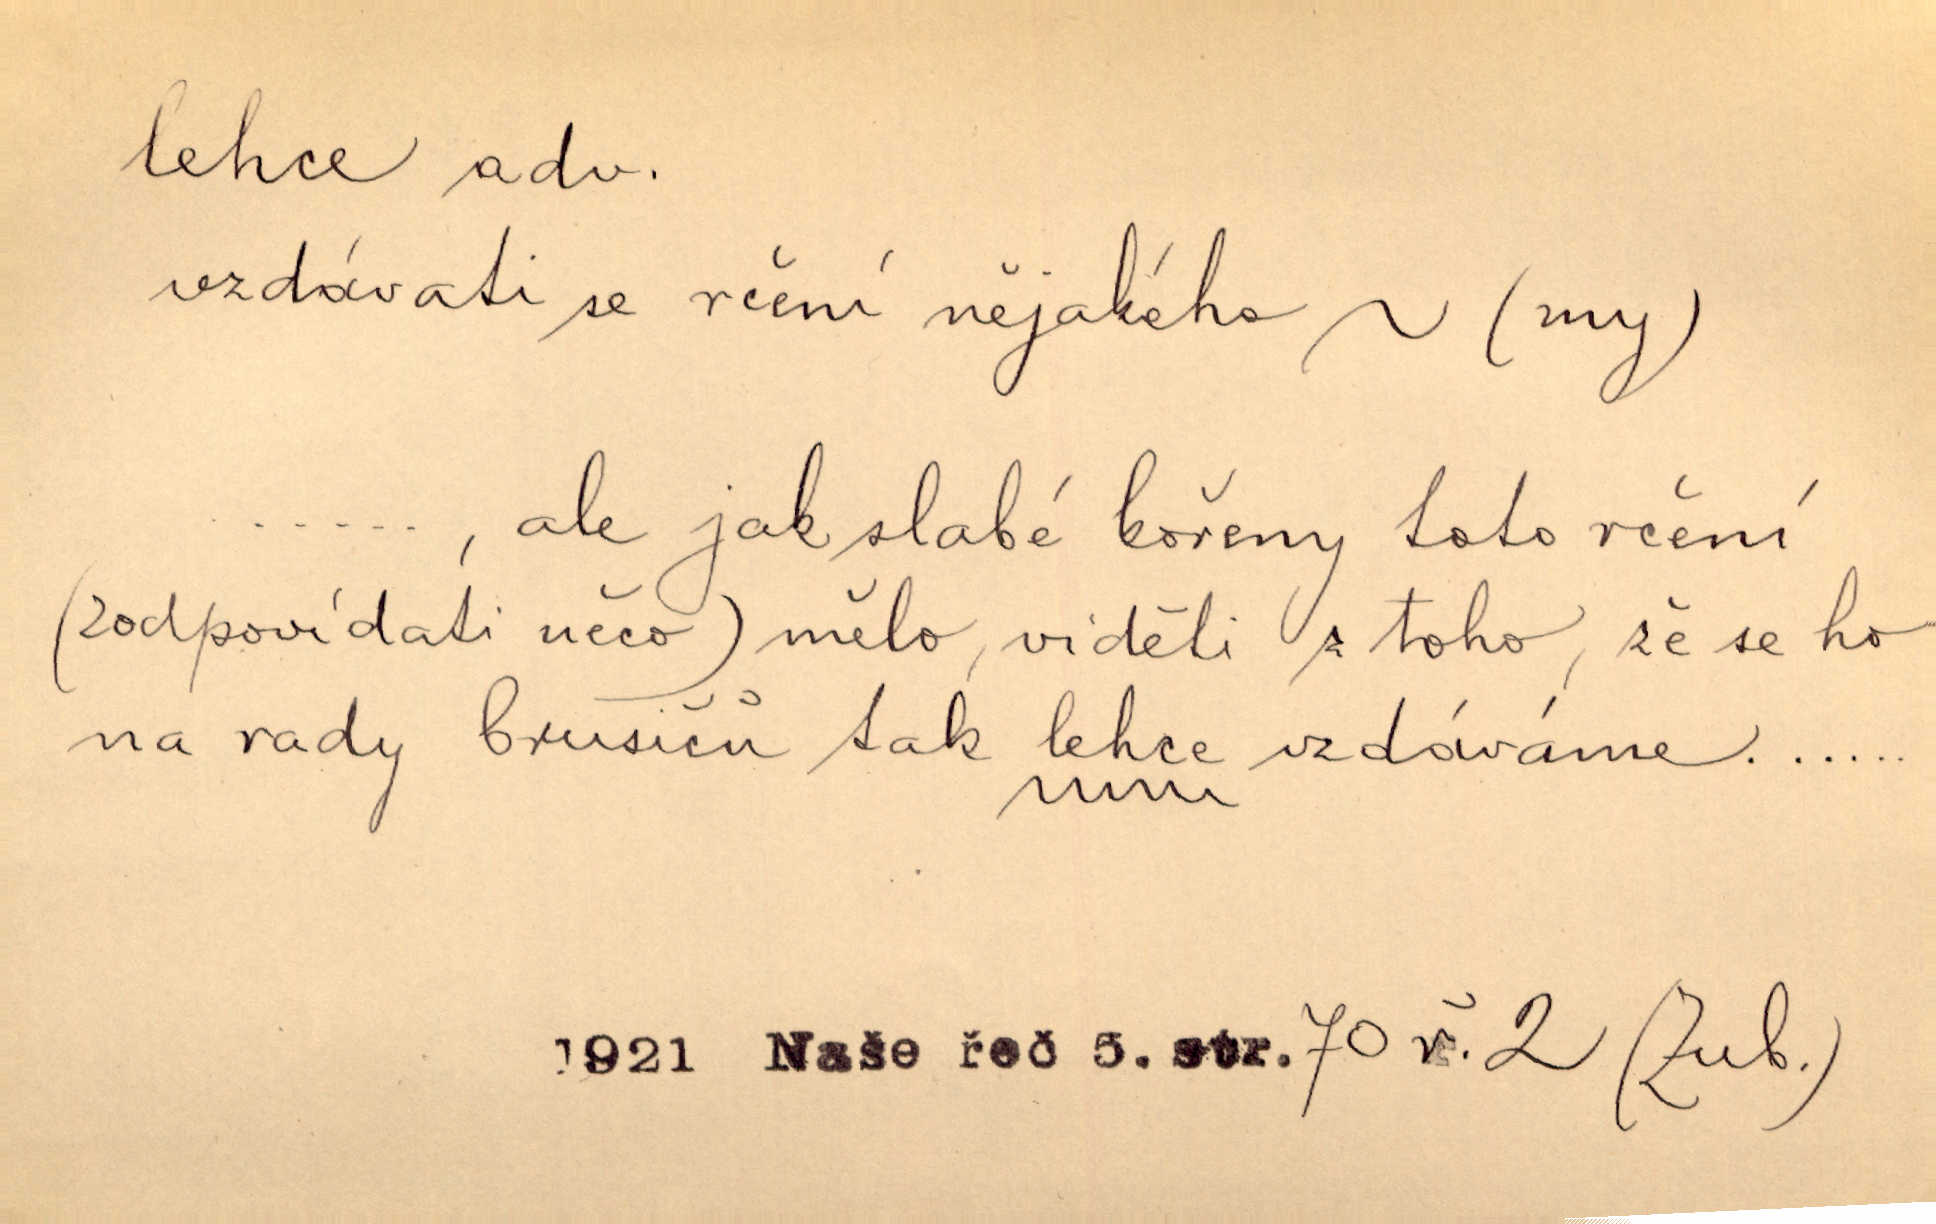 lehce adv.
vzdávati se rčení nějakého ~ (my)
......, ale jak slabé kořeny toto rčení
(zodpovídati něco) mělo, viděti z toho, že se ho
na rady brusičů tak lehce vzdáváme......
1921 Naše řeč 5. str. 70 ř. 2 (Zub.)